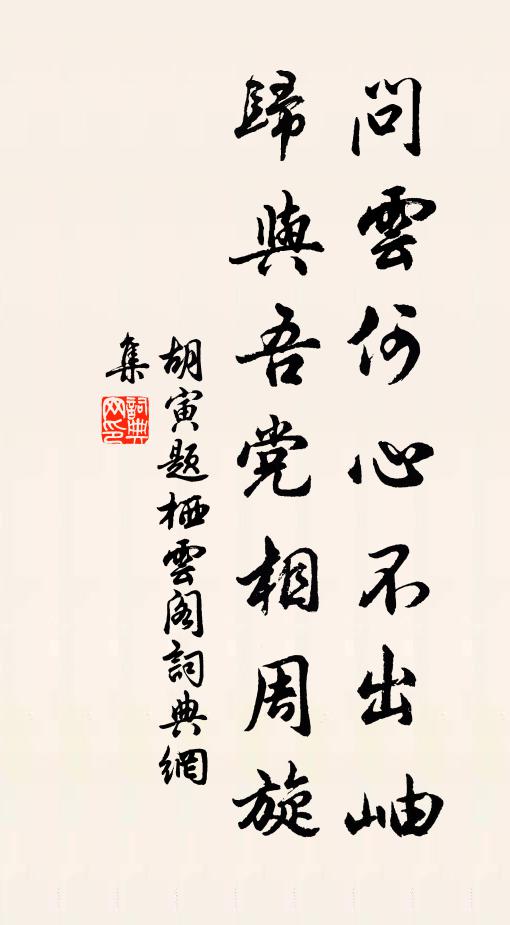 問雲何心不出岫
歸與吾党相周旋
胡寅題栖雲閣詞典網
集
詞典網印